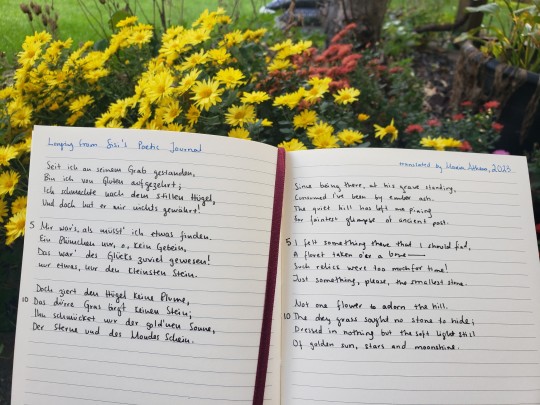 Longing from Sisi's Poetic Journal
Seit ich an seinem Grab gestanden,
Bin ich von Gluten aufgezehrt;
Ich schmachte nach dem stillen Hügel,
Und doch hat er mir nichts gewährt!
5 Mir war's, als müsst' ich etwas finden.
Ein Blümchen nur, o, kein Gebein,
Das wär' des Glücks zuviel gewesen!
nur etwas, nur den kleinsten Stein.
Doch ziert den Hügel keine Blume,
10 Das dürre Gras birgt keinen Stein;
Ihn schmücket nur der gold'nen Sonne,
Der Sterne und des Mondes Schein.
translated by 2023
Since being there, at his grave standing,
Consumed I've been by ember ash.
The quiet hill has left me pining
For faintest glimpse of ancient past.
5 I felt something there that I should find,
A floret taken o'er a bone—
Such relics were too much for time!
Just something, please, the smallest stone.
Not one flower to adorn the hill.
10 The dry grass sought no stone to hide;
Dressed in nothing but the soft light still
Of golden sun, stars and moonshine.